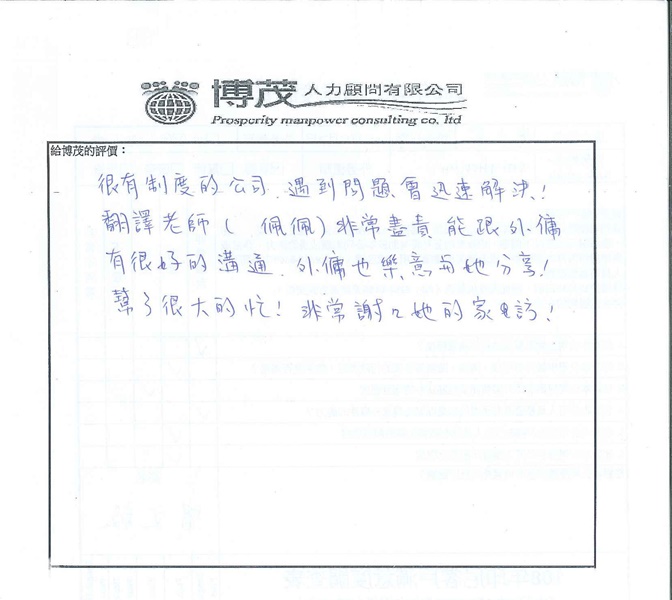 博茂 人力顧問有限公司
Prosperity manpower consulting co. ltd
給博茂的評價：
很有制度的公司. 遇到問題會迅速解決!
翻譯老師( 佩佩)非常盡責,能跟外傭
有很好的溝通. 外傭也樂意與她分享!
幫了很大的忙! 非常謝々她的家電訪!